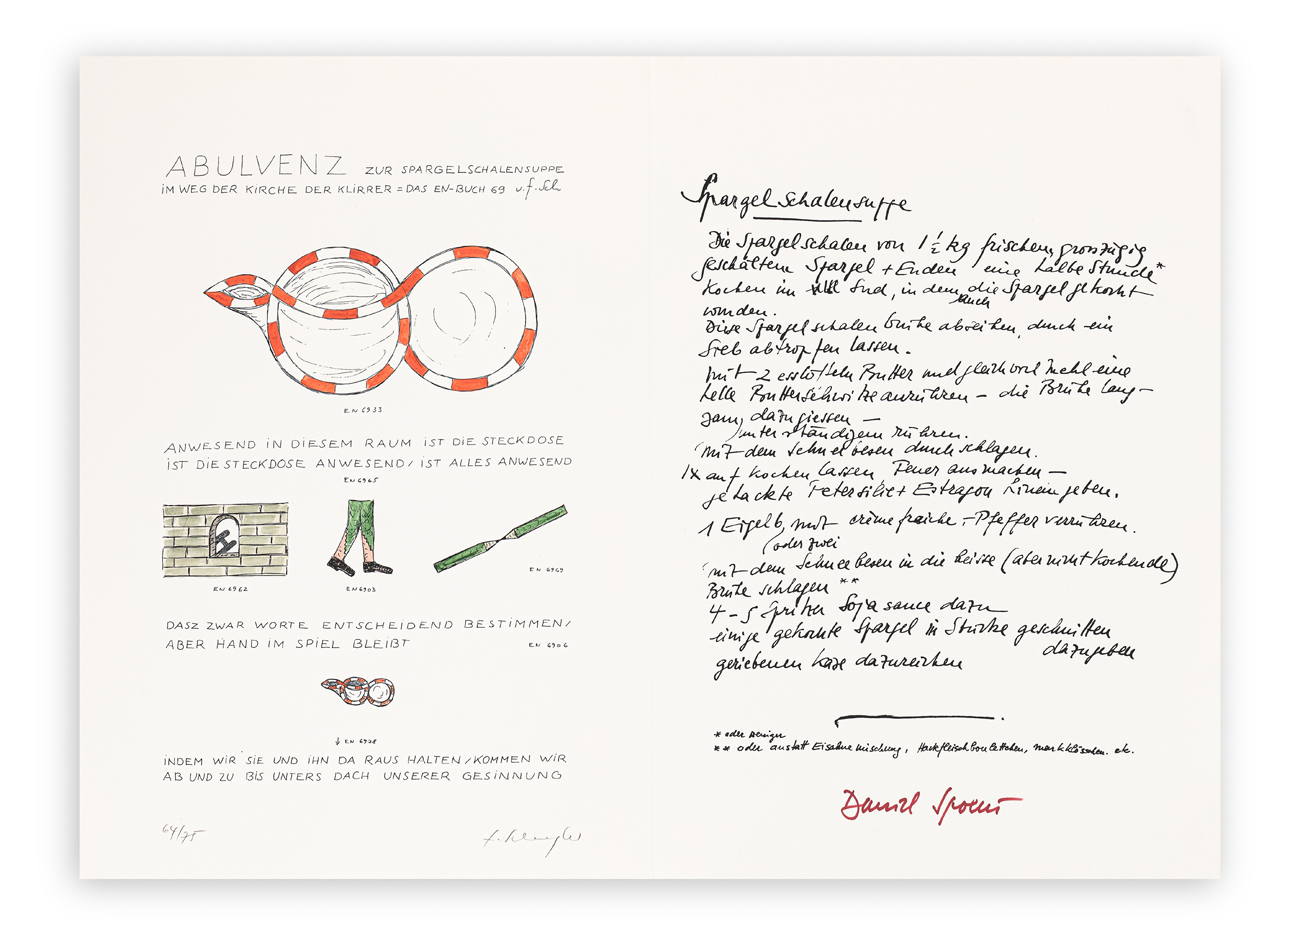 ABULVENZ ZUR SPARGELSCHALENSUPPE
IM WEG DER KIRCHE DER KLIRRER = DAS EN-BUCH 69 v.f. Sch
EN 6933
ANWESEND IN DIESEM RAUM IST DIE STECKDOSE
IST DIE STECKDOSE ANWESEND / IST ALLES ANWESEND
EN 6965
EN 6962
EN 6903
EN 6969
DASZ ZWAR WORTE ENTSCHEIDEND BESTIMMEN /
ABER HAND IM SPIEL BLEIBT
EN 6906
↓ EN 6928
INDEM WIR SIE UND IHN DA RAUS HALTEN / KOMMEN WIR
AB UND ZU BIS UNTERS DACH UNSERER GESINNUNG
64/75
Spargelschalensuppe
Die Spargelschalen von 1 1/2 kg frischem grosszügig
geschältem Spargel + Enden eine halbe Stunde*
kochen im Sud, in dem die Spargel gekocht
wurden.
Diese Spargelschalen brühe abseihen, durch ein
Sieb abtropfen lassen.
mit 2 esslöffeln Butter und gleichviel Mehl eine
helle Butterschwitze anrühren – die Brühe lang-
sam dazugiessen –
unter ständigem rühren.
mit dem Schneebesen durchschlagen.
1x auf kochen lassen Feuer ausmachen –
gehackte Petersilie + Estragon hineingeben.
1 Eigelb, mit crème fraiche – Pfeffer verrühren.
(oder zwei
mit dem Schneebesen in die heisse (aber nicht kochende)
Brühe schlagen **
4 – 5 Spritzer Sojasauce dazu
einige gekochte Spargel in Stücke geschnitten
dazugeben
geriebenen Käse dazureichen
* oder weniger
** oder anstatt Eisahnemischung, Hackfleischbouletten, markklösschen. etc.
Daniel Spoerri